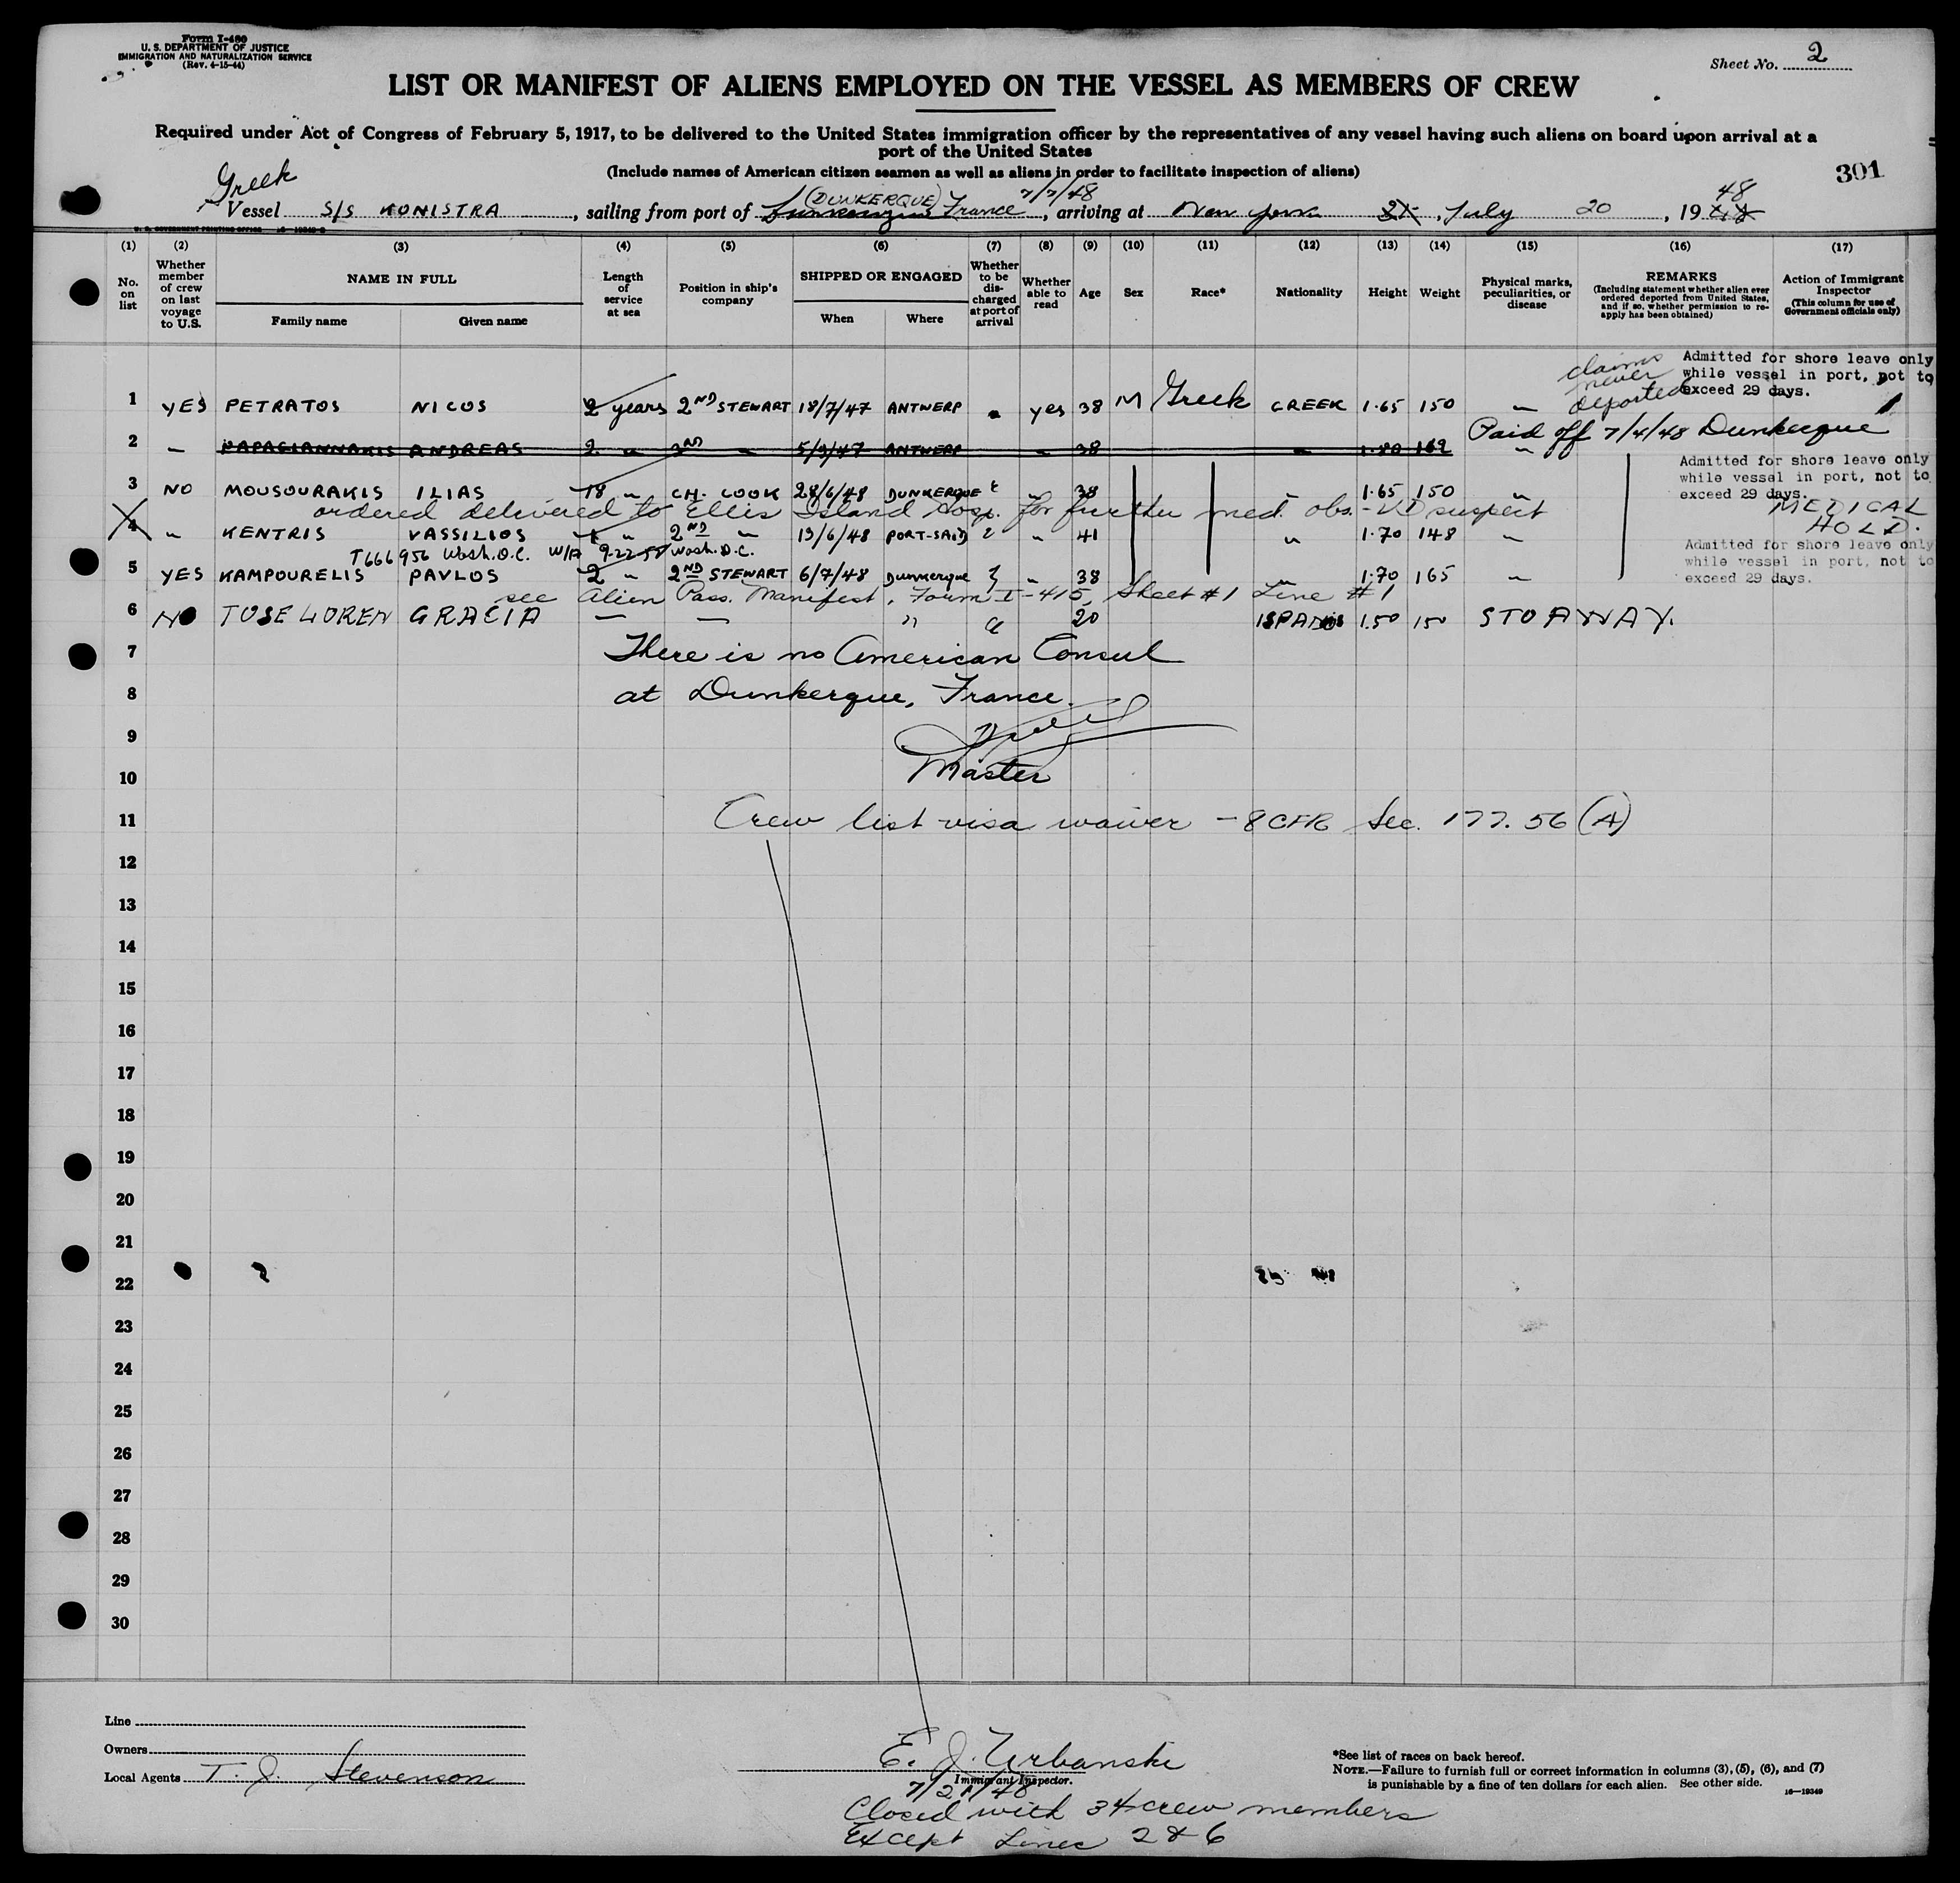 Form I-480
U. S. DEPARTMENT OF JUSTICE
IMMIGRATION AND NATURALIZATION SERVICE
(Rev. 4-15-44)
Sheet No. 2
LIST OR MANIFEST OF ALIENS EMPLOYED ON THE VESSEL AS MEMBERS OF CREW
Required under Act of Congress of February 5, 1917, to be delivered to the United States immigration officer by the representatives of any vessel having such aliens on board upon arrival at a
port of the United States
(Include names of American citizen seamen as well as aliens in order to facilitate inspection of aliens)
301
Greek (DUNKERQUE) 7/7/48 48
Vessel S/S KONISTRA, sailing from port of Dunkerque France, arriving at New York 21, July 20, 19
(1) (2) (3) (4) (5) (6) (7) (8) (9) (10) (11) (12) (13) (14) (15) (16) (17)
No. on list
Whether member of crew on last voyage to U.S.
NAME IN FULL
Family name
Given name
Length of service at sea
Position in ship's company
SHIPPED OR ENGAGED
When
Where
Whether to be discharged at port of arrival
Whether able to read
Age
Sex
Race*
Nationality
Height
Weight
Physical marks, peculiarities, or disease
REMARKS
(Including statement whether alien ever ordered deported from United States, and if so, whether permission to reapply has been obtained)
Action of Immigrant Inspector
(This column for use of Government officials only)
claims never deported
Admitted for shore leave only
while vessel in port, not to
exceed 29 days.
1 YES PETRATOS NICOS 2 years 2ND STEWART 18/7/47 ANTWERP yes 38 M Greek GREEK 1.65 150 "
Paid off 7/4/48 Dunkerque
2 " PAPAGIANNAKIS ANDREAS 2 " 2ND " 5/9/47 ANTWERP " 38 " 1.80 162 "
Admitted for shore leave only
while vessel in port, not to
exceed 29 days.
3 NO MOUSOURAKIS ILIAS 18 " CH. COOK 28/6/48 DUNKERQUE " 38 " 1.65 150 "
ordered delivered to Ellis Island Hosp. for further med. obs. - VD suspect
MEDICAL
HOLD.
4 " KENTRIS VASSILIOS " 2ND " 19/6/48 PORT-SAID " 41 " 1.70 148 "
T666956 Wash. D.C. W/A 9-22-55 Wash. D.C.
Admitted for shore leave only
while vessel in port, not to
exceed 29 days.
5 YES KAMPOURELIS PAVLOS 2 " 2ND STEWART 6/7/48 Dunkerque " 38 " 1.70 165 "
see Alien Pass. Manifest, Form I-415, Sheet #1 Line #1
6 NO TOSE LOREN GRACIA — — " 20 ISPANIS 1.50 150 STOAWAY.
7 There is no American Consul
8 at Dunkerque, France.
9
10 Master
11 Crew list visa waiver - 8 CFR Sec. 177.56 (A)
12
13
14
15
16
17
18
19
20
21
22
23
24
25
26
27
28
29
30
Line
Owners
Local Agents T. J. Stevenson
E. J. Urbanski
Immigrant Inspector.
7/21/48
Closed with 34 crew members
Except Lines 2 & 6
*See list of races on back hereof.
NOTE.—Failure to furnish full or correct information in columns (3), (5), (6), and (7)
is punishable by a fine of ten dollars for each alien. See other side.
16—19349